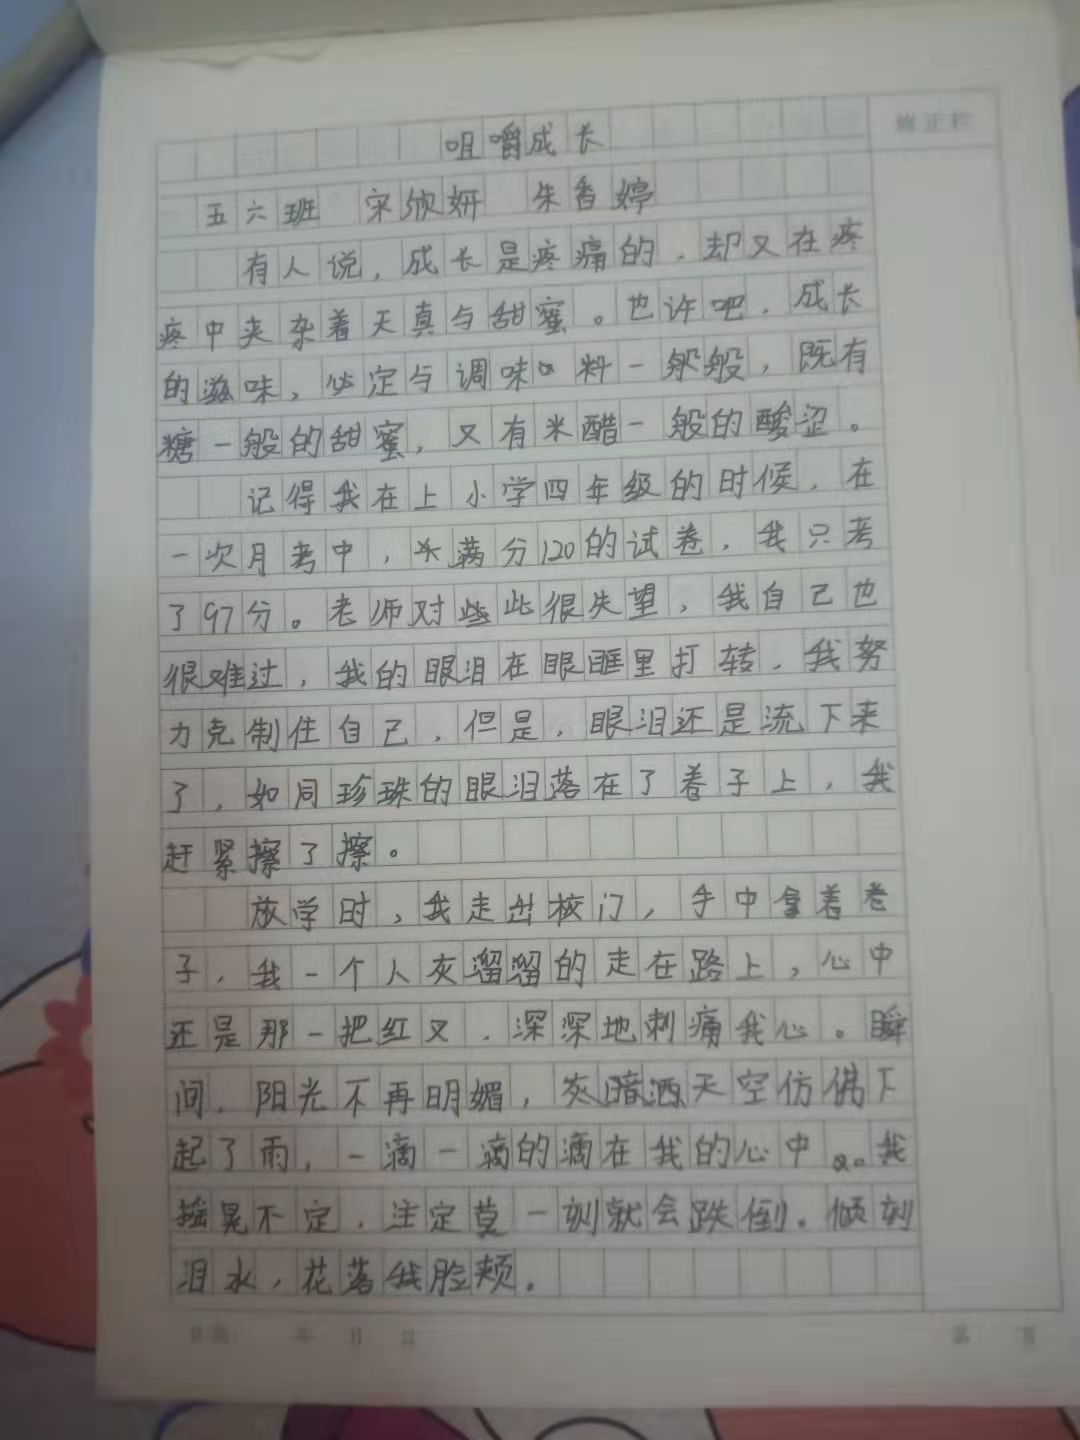 修正栏
咀嚼成长
五六班 宋欣妍 朱香婷
有人说，成长是疼痛的，却又在疼
疼中夹杂着天真与甜蜜。也许吧，成长
的滋味，必定与调味料一般般，既有
糖一般的甜蜜，又有米醋一般的酸涩。
记得我在上小学四年级的时候，在
一次月考中，满分120的试卷，我只考
了97分。老师对些此很失望，我自己也
很难过，我的眼泪在眼眶里打转，我努
力克制住自己，但是，眼泪还是流下来
了，如同珍珠的眼泪落在了卷子上，我
赶紧擦了擦。
放学时，我走出校门，手中拿着卷
子，我一个人灰溜溜的走在路上，心中
还是那一把红叉，深深地刺痛我心。瞬
间，阳光不再明媚，灰暗洒天空仿佛下
起了雨，一滴一滴的滴在我的心中。我
摇晃不定，注定莫一刻就会跌倒。倾刻
泪水，花落我脸颊。
日期 年 月 日 第 页